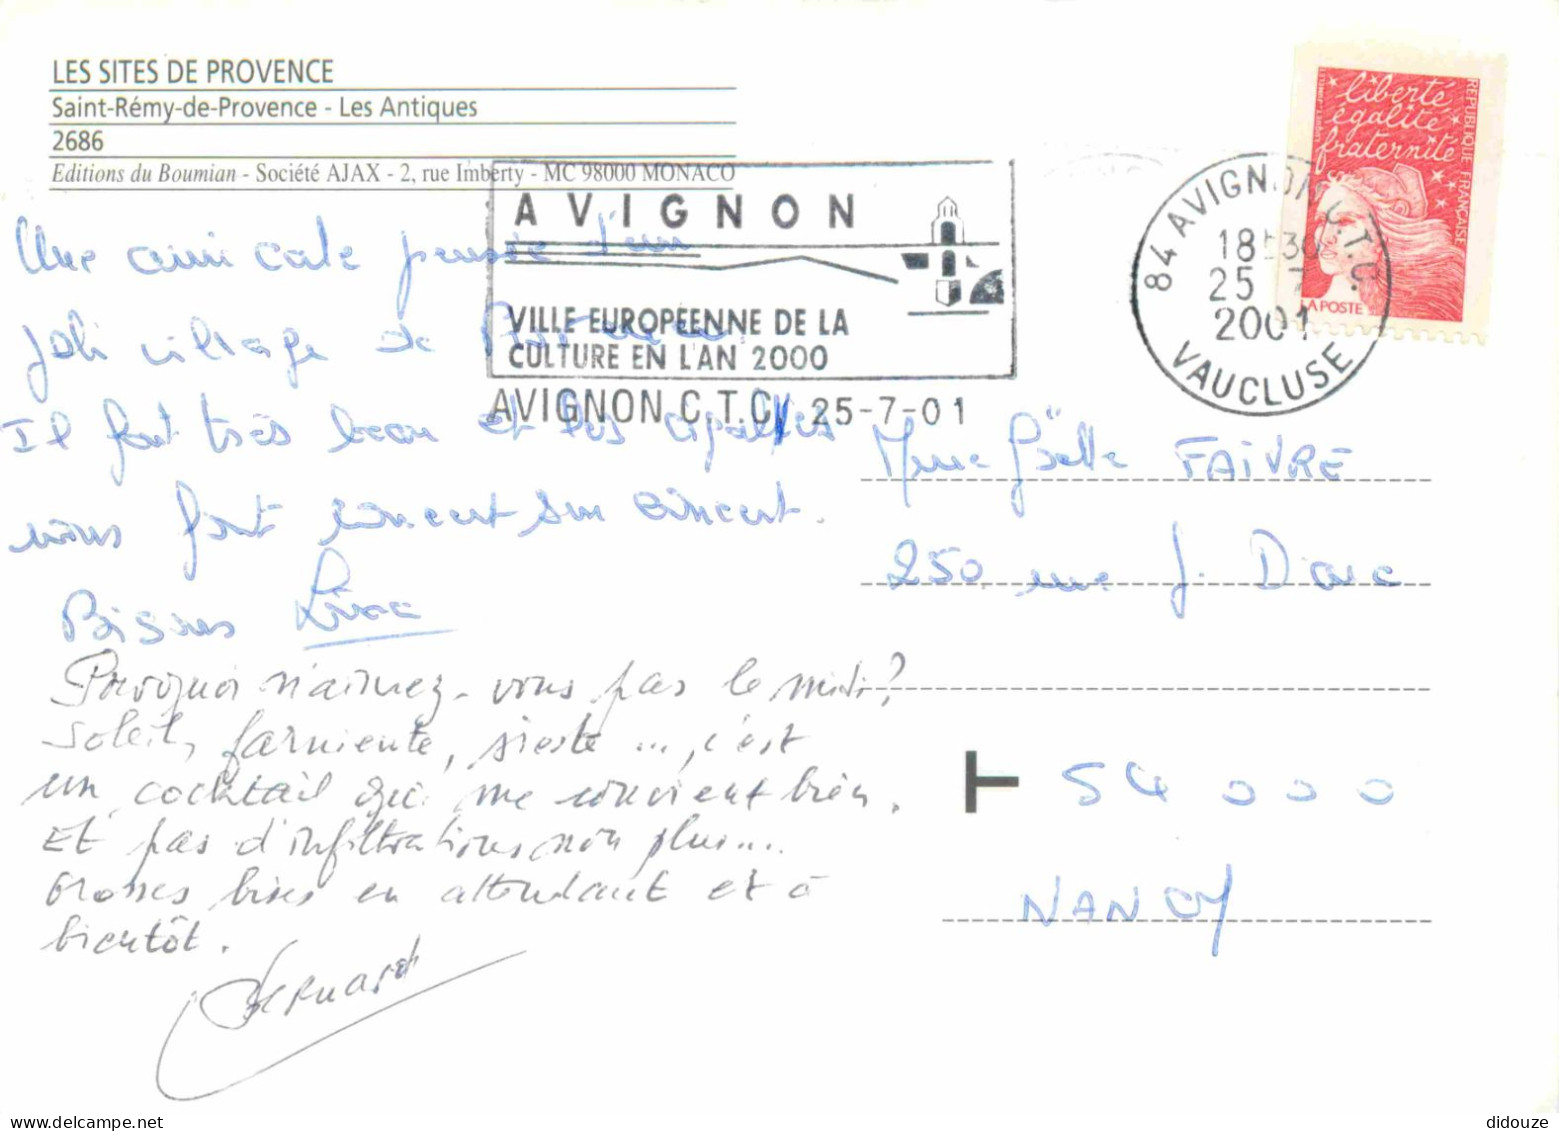 LES SITES DE PROVENCE
Saint-Rémy-de-Provence - Les Antiques
2686
Editions du Boumian - Société AJAX - 2, rue Imberty - MC 98000 MONACO
AVIGNON
VILLE EUROPÉENNE DE LA
CULTURE EN L'AN 2000
AVIGNON C.T.C. 25-7-01
84 AVIGNON C.T.C.
18H30
25 7
2001
VAUCLUSE
liberté
égalité
fraternité
RÉPUBLIQUE FRANÇAISE
LA POSTE
Une amicale pensée d'un
joli village de
Il fait très beau et les cigales
nous font concert sur concert.
Bisous
Pourquoi n'aimez-vous pas le midi?
Soleil, farniente, sieste ..., c'est
un cocktail qui me convient bien.
Et pas d'infiltrations non plus...
Grosses bises en attendant et à
bientôt.
Bernard
Mme Gaëlle FAIVRE
250 rue J. D'arc
54000
NANCY
didouze